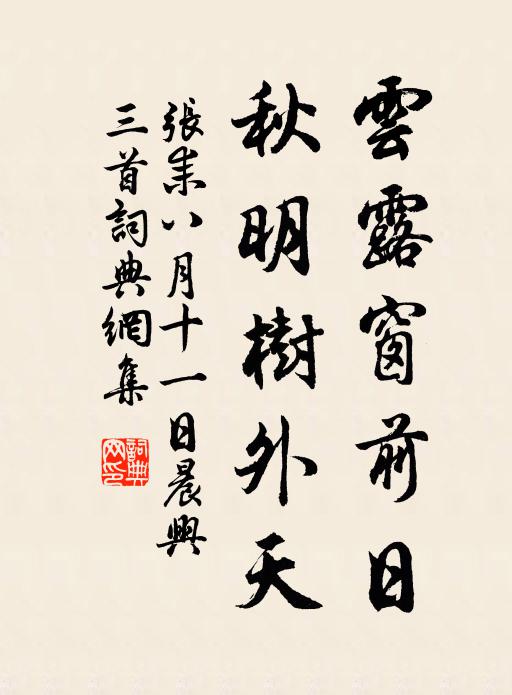 雲露窗前日
秋明樹外天
張耒八月十一日晨興
三首詞典網集
詞典網印